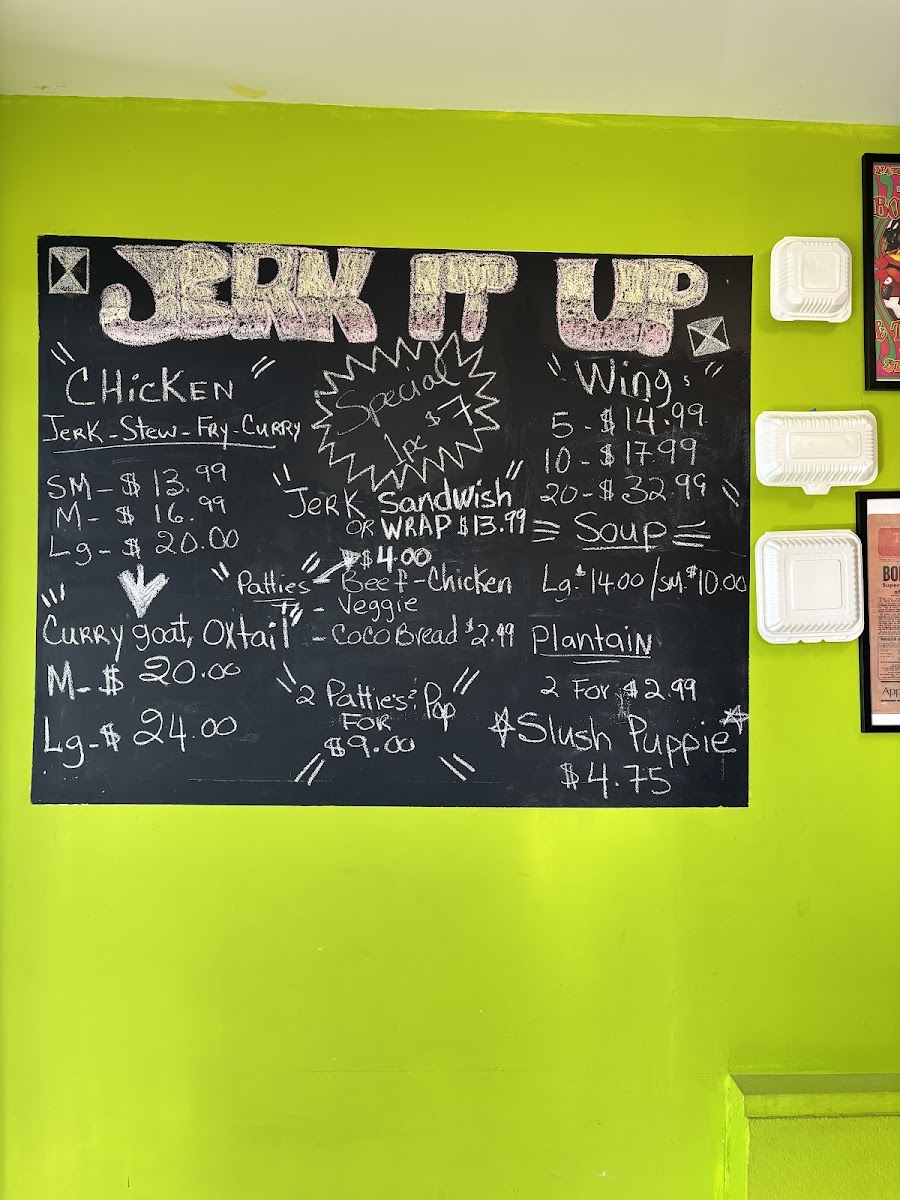 JERK IT UP
"CHicKEN"
JERK-STEW-FRY-CURRY
SM-$ 13.99
M-$ 16.99
Lg-$ 20.00
"CURRY goat, OXtail"
M-$ 20.00
Lg-$ 24.00
Special
1pc $7
"JERK Sandwish"
OR WRAP $13.99
$4.00
"Patties" - Beef-Chicken
- Veggie
- COCO Bread $2.99
"2 Patties & Pop"
FOR
$9.00
"Wings"
5 - $14.99
10 - $17.99
20 - $32.99
Soup
Lg-$14.00/SM-$10.00
PlantaiN
2 For $2.99
Slush Puppie
$4.75